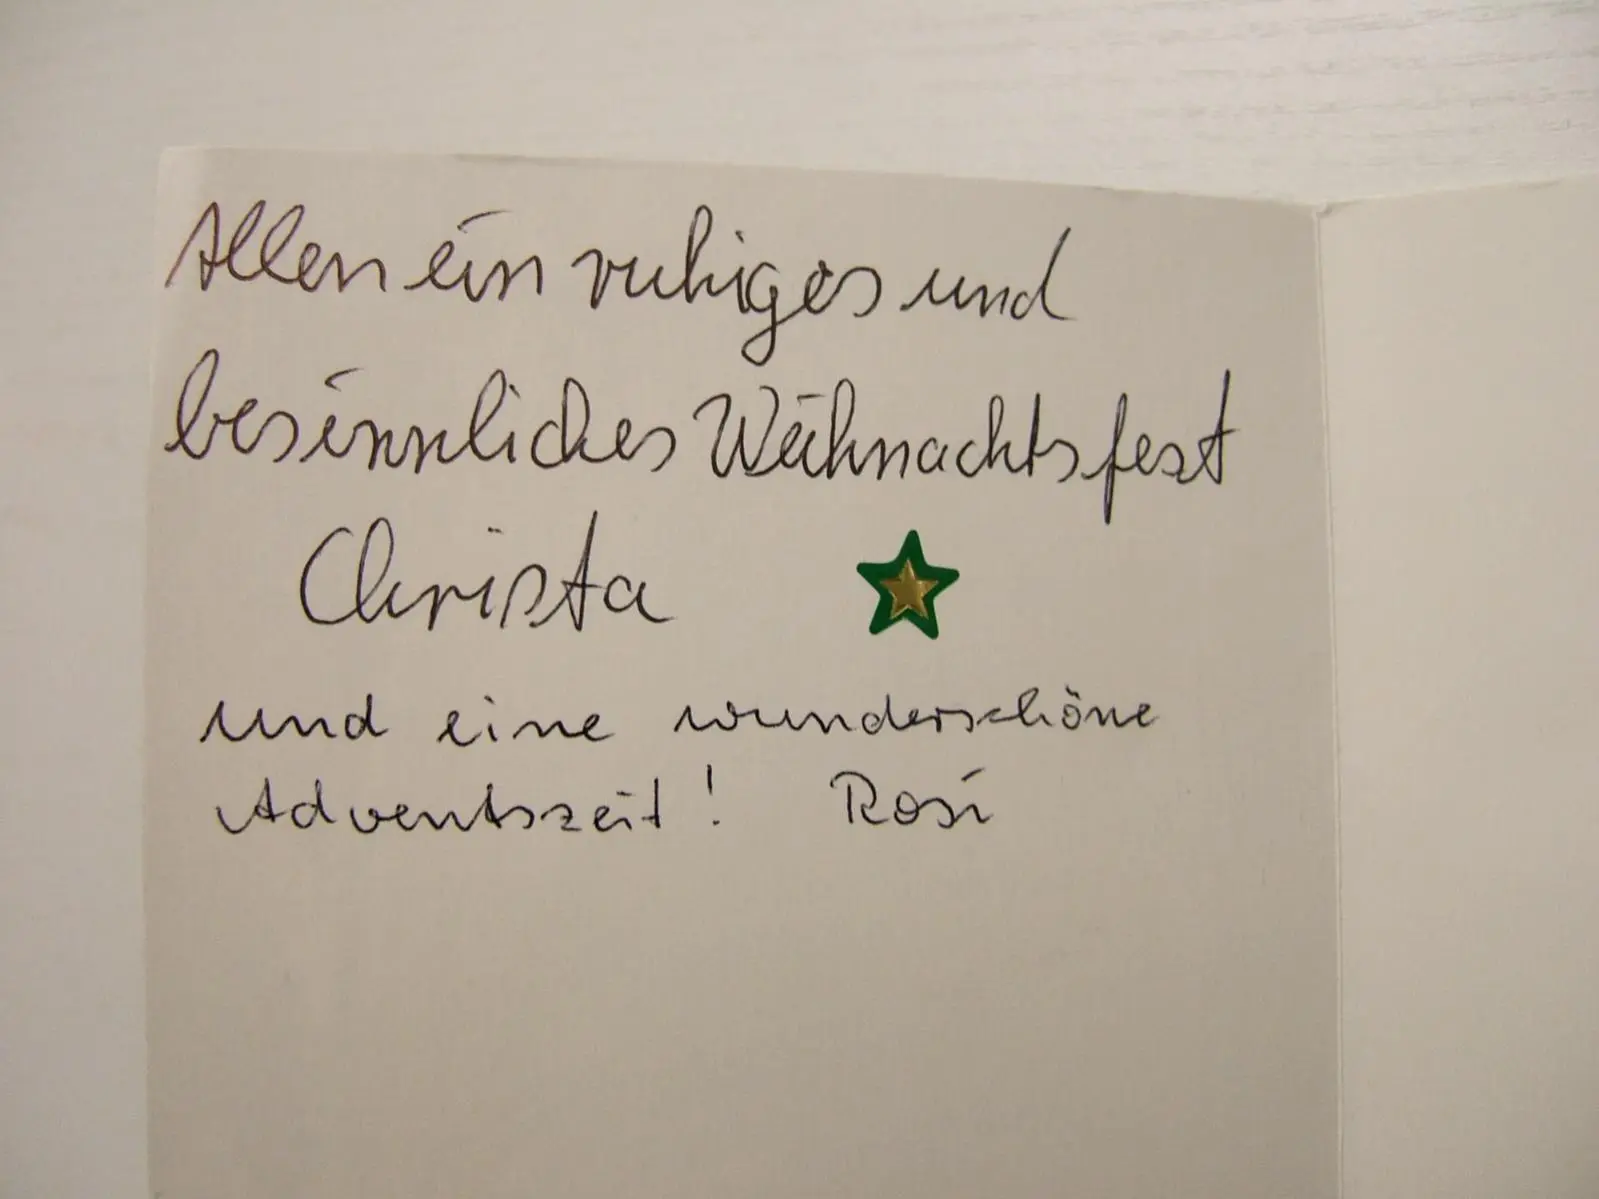 Allen ein ruhiges und
besinnliches Weihnachtsfest
Christa
und eine wunderschöne
Adventszeit! Rosi